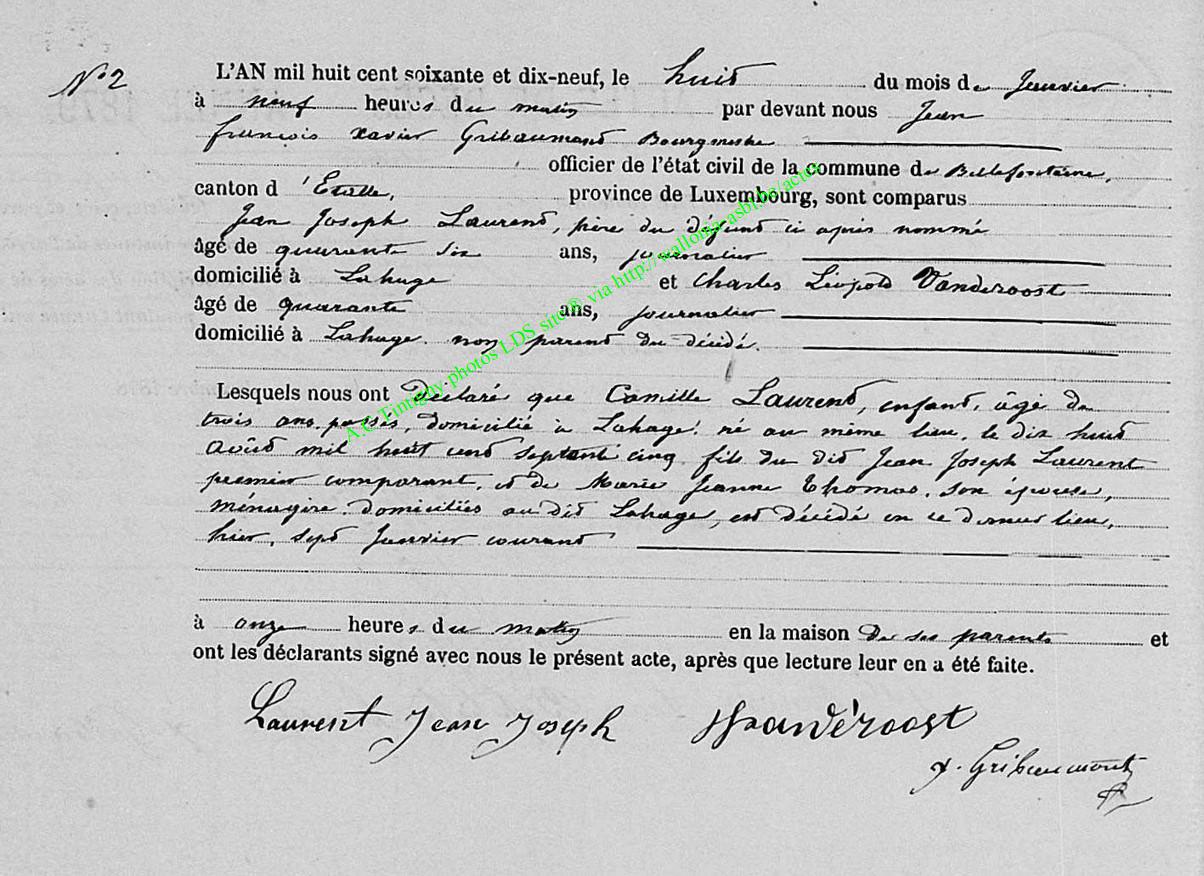 N° 2
L'AN mil huit cent soixante et dix-neuf, le huit du mois de Janvier
à neuf heures du matin par devant nous Jean
françois xavier Gribaumont Bourgmestre
officier de l'état civil de la commune de Bellefontaine,
canton d'Etalle, province de Luxembourg, sont comparus
Jean Joseph Laurent, père du défunt ci après nommé
âgé de quarante six ans, journalier
domicilié à Lahage et Charles Léopold Vanderoost
âgé de quarante ans, journalier
domicilié à Lahage. non parent du décédé.
Lesquels nous ont déclaré que Camille Laurent, enfant, âgé de
trois ans passés, domicilié à Lahage, né au même lieu, le dix huit
Août mil huit cent septante cinq fils du dit Jean Joseph Laurent
premier comparant, et de Marie Jeanne Thomas, son épouse,
ménagère, domiciliés au dit Lahage, est décédé en ce dernier lieu,
hier, sept Janvier courant
à onze heures du matin en la maison de ses parents et
ont les déclarants signé avec nous le présent acte, après que lecture leur en a été faite.
Laurent Jean Joseph Vandéroost
x. Gribaumont
A.C Tintigny photos LDS site® via http://wallonia-asbl.be/actes